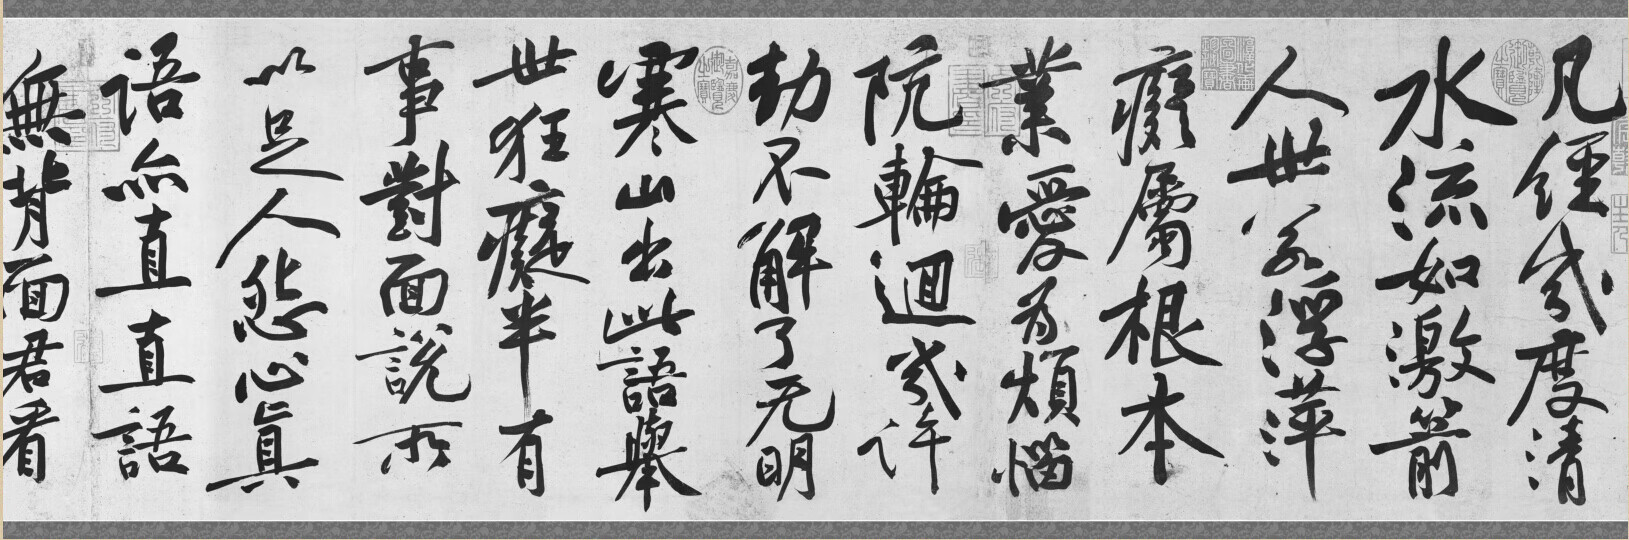 凡經幾度清
水流如激箭
人世若浮萍
癡屬根本
業愛為煩惱
阬輪迴幾許
劫不解了无明
寒山出此語舉
世狂癡半有
事對面說所
以足人怨心真
語亦直直語
無背面君看